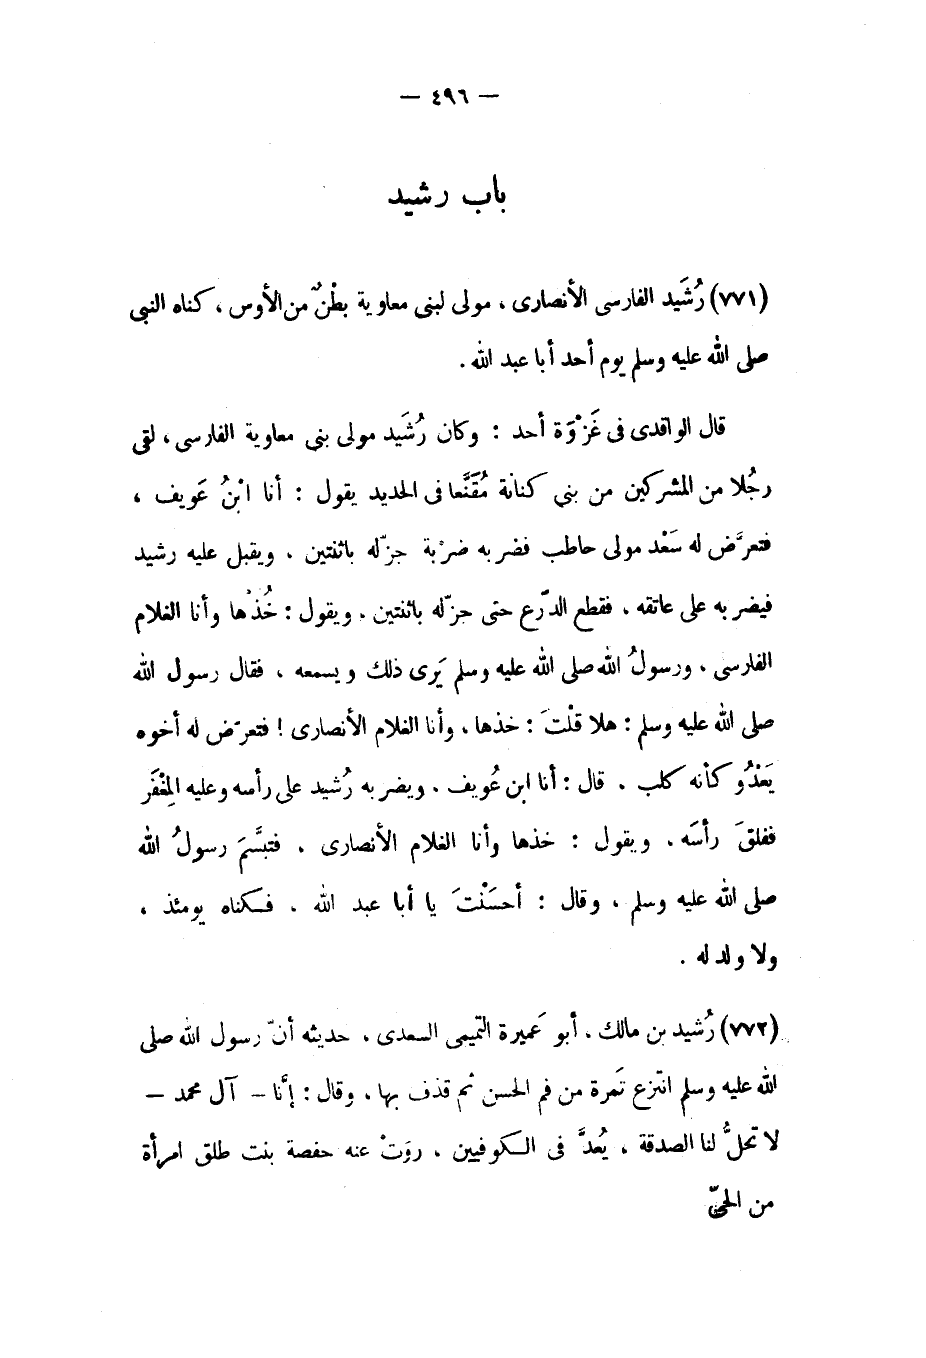 — ٤٩٦ —
باب رشيد
(٧٧١) رُشَيد الفارسى الأنصارى ، مولى لبنى معاوية بطْنٌ من الأوس ، كناه النبى
صلى الله عليه وسلم يوم أحد أبا عبد الله .
قال الواقدى فى غَزْوَة أحد : وكان رُشَيد مولى بنى معاوية الفارسى ، لقى
رجُلا من المشركين من بنى كنانة مُقَنَّعا فى الحديد يقول : أنا ابْنُ عَويف ،
فتعرَّض له سَعْد مولى حاطب فضربه ضرْبة جزّله باثنتين . ويقبل عليه رشيد
فيضربه على عاتقه ، فقطع الدّرع حتى جزّله باثنتين . ويقول : خُذْها وأنا الغلام
الفارسى . ورسولُ الله صلى الله عليه وسلم يَرى ذلك ويسمعه ، فقال رسول الله
صلى الله عليه وسلم : هلا قلْتَ : خذها ، وأنا الغلام الأنصارى ! فتعرّض له أخوه
يَعْدُو كأنه كلب . قال : أنا ابن عُويف . ويضربه رُشيد على رأسه وعليه المِغْفَر
ففلقَ رأسَه . ويقول : خذها وأنا الغلام الأنصارى . فتبسَّمَ رسولُ الله
صلى الله عليه وسلم ، وقال : أحسَنْتَ يا أبا عبد الله . فكناه يومئذ ،
ولا ولد له .
(٧٧٢) رُشيد بن مالك . أبو عَميرة التميمى السعدى ، حديثه أنّ رسول الله صلى
الله عليه وسلم انتزع تَمرة من فم الحسن ثم قذف بها ، وقال : إنَّا – آل محمد –
لا تحلُّ لنا الصدقة ، يُعدَّ فى الكوفيين ، روَتْ عنه حفصة بنت طلق امرأة
من الحىّ